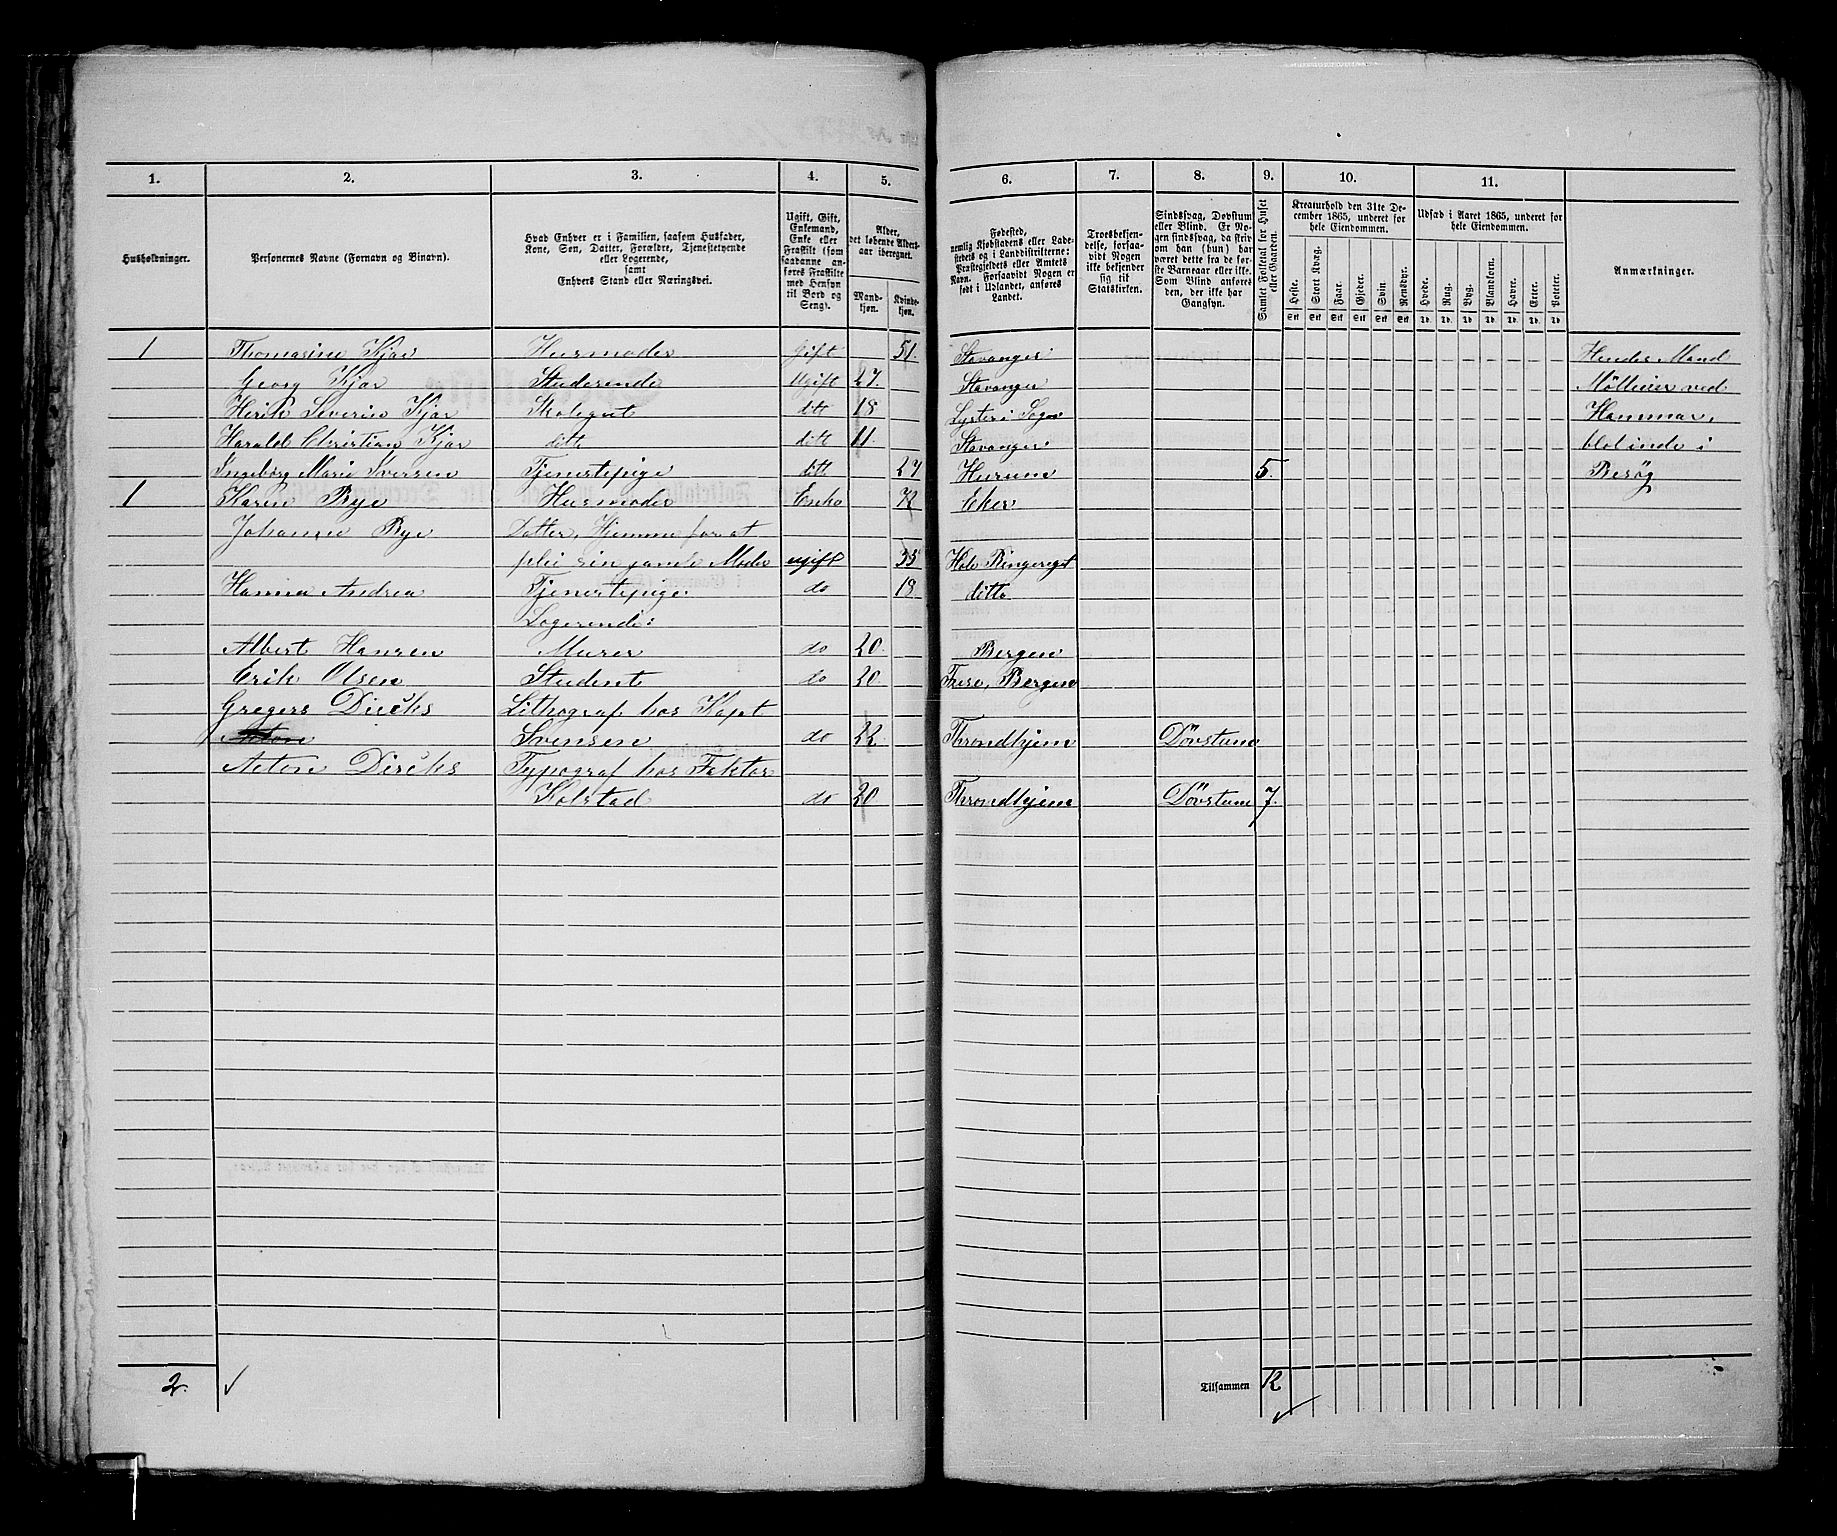 1. 2. 3. 4. 5. 6. 7. 8. 9. 10. 11.
Husholdninger.
Personernes Navne (Fornavn og Binavn).
Hvad Enhver er i Familien, saasom Husfader,
Kone, Søn, Datter, Forældre, Tjenestetyende
eller Logerende,
samt
Enhvers Stand eller Næringsvei.
Ugift, Gift,
Enkemand,
Enke eller
Fraskilt (som
saadanne an-
føres Fraskilte
med Hensyn
til Bord og
Seng).
Alder,
det løbende Alders-
aar iberegnet.
Mand-
kjøn.
Kvinde-
kjøn.
Fødested,
nemlig Kjøbstadens eller Lade-
stedets og i Landdistrikterne:
Præstegjeldets eller Amtets
Navn. Forsaavidt Nogen er
født i Udlandet, anføres
Landet.
Troesbekjen-
delse, forsaa-
vidt Nogen
ikke bekjender
sig til
Statskirken.
Sindssvag, Døvstum
eller Blind. Er No-
gen sindssvag, da skriv
om han (hun) har
været dette fra de før-
ste Barneaar eller ikke.
Som Blind anføres
den, der ikke har
Gangsyn.
Samlet Folketal for Huset
eller Gaarden.
Kreaturhold den 31te De-
cember 1865, underet for
hele Eiendommen.
Heste. Stort Kvæg. Faar. Gjeder. Svin. Rensdyr.
Stk Stk Stk Stk Stk Stk
Udsæd i Aaret 1865, underet for
hele Eiendommen.
Hvede. Rug. Byg. Blandkorn. Havre. Erter. Poteter.
Td. Td. Td. Td. Td. Td. Td.
Anmærkninger.
1 Thomasine Kjær Husmoder Gift 51. Stavanger Hendes Mand
Georg Kjær Studerende Ugift 27. Stavanger Mølleier ved
Henrik Severin Kjær Skolegut ditt 18 Lyster i Sogn Hammer,
Harald Christian Kjær ditto ditt 11. Stavanger blot inde i
Ingeborg Marie Iversen Tjenestepige ditt 27 Hurum 5. Besøg
1 Karen Bye Husmoder Enke 72 Eker
Johanne Bye Datter, Hjemme for at
pleie sin gamle Moder ugift 35 Hole Ringeriget
Hanna Andrea Tjenestepige do 18 ditto
Logerende:
Albert Hansen Murer do 20. Bergen
Erik Olsen Student do 20 Bergen
Gregers Dircks Lithograf hos Kapt
Svensen do 22. Throndhjem Døvstum
Anton Dircks Typograf hos Faktor
Kolstad do 20 Throndhjem Døvstum 7.
2.
Tilsammen 12